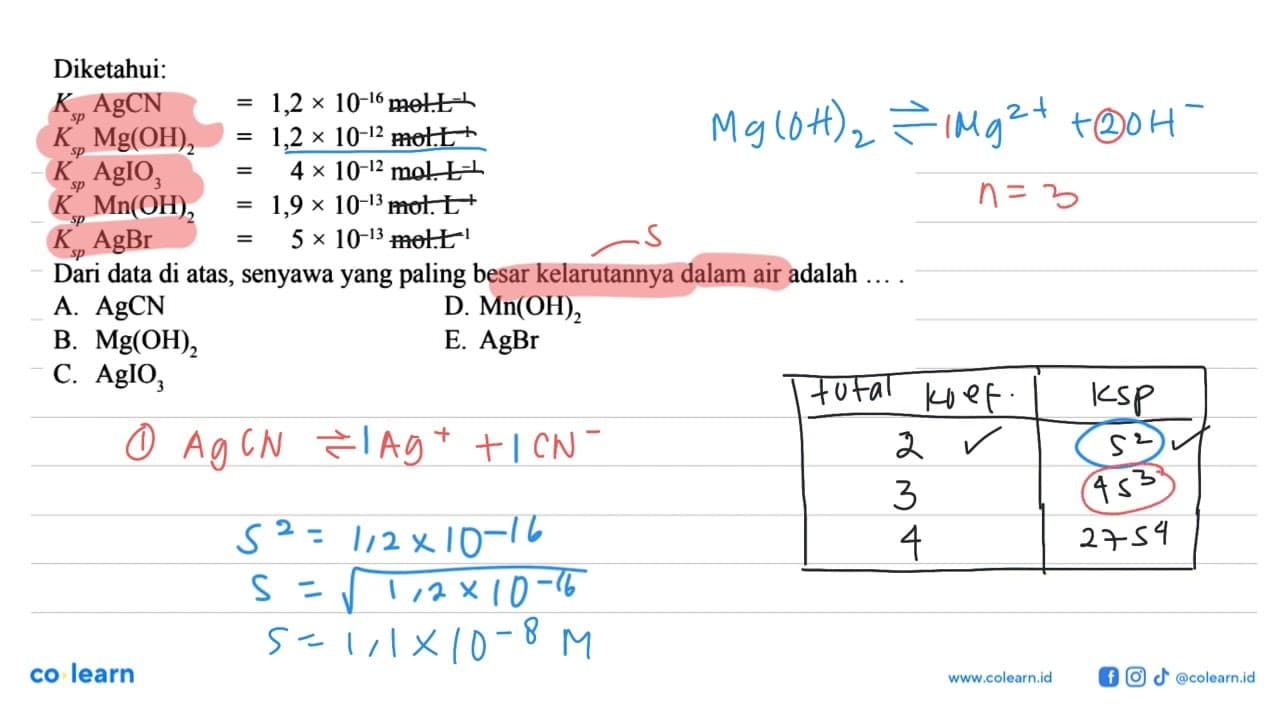 Diketahui:
Ksp AgCN = 1,2 × 10–16 mol.L–1
Ksp Mg(OH)2 = 1,2 × 10–12 mol.L–1
Ksp AgIO3 = 4 × 10–12 mol. L–1
Ksp Mn(OH)2 = 1,9 × 10–13 mol. L–1
Ksp AgBr = 5 × 10–13 mol.L–1
Dari data di atas, senyawa yang paling besar kelarutannya dalam air adalah ... .
A. AgCN
B. Mg(OH)2
C. AgIO3
D. Mn(OH)2
E. AgBr
Mg(OH)2 ⇌ 1Mg2+ + 2OH–
n = 3
s
① AgCN ⇌ 1Ag+ + 1CN–
s2 = 1,2 × 10–16
s = √1,2 × 10–16
s = 1,1 × 10–8 M
total koef. Ksp
2 ✓ s2 ✓
3 4s3
4 27s4
co·learn
www.colearn.id
@colearn.id